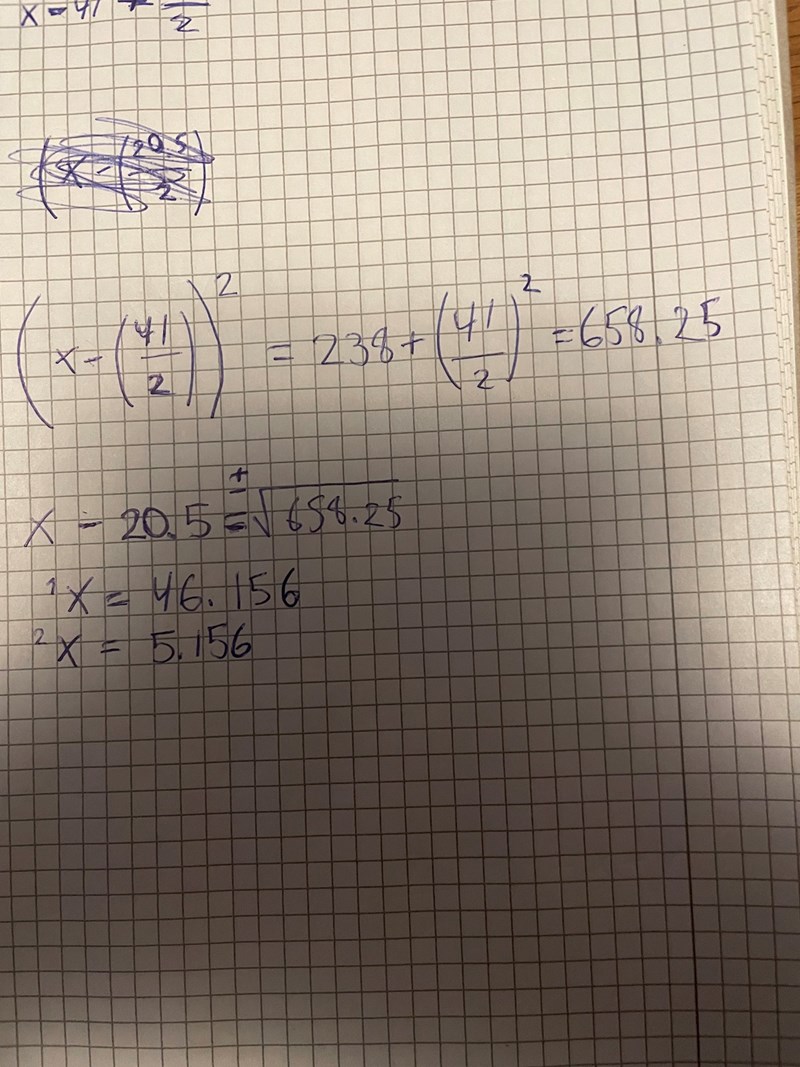 x - 41
2
(x - (20.5
2))
(x - (41/2))² = 238 + (41/2)² = 658.25
x - 20.5 = ±√658.25
¹x = 46.156
²x = 5.156